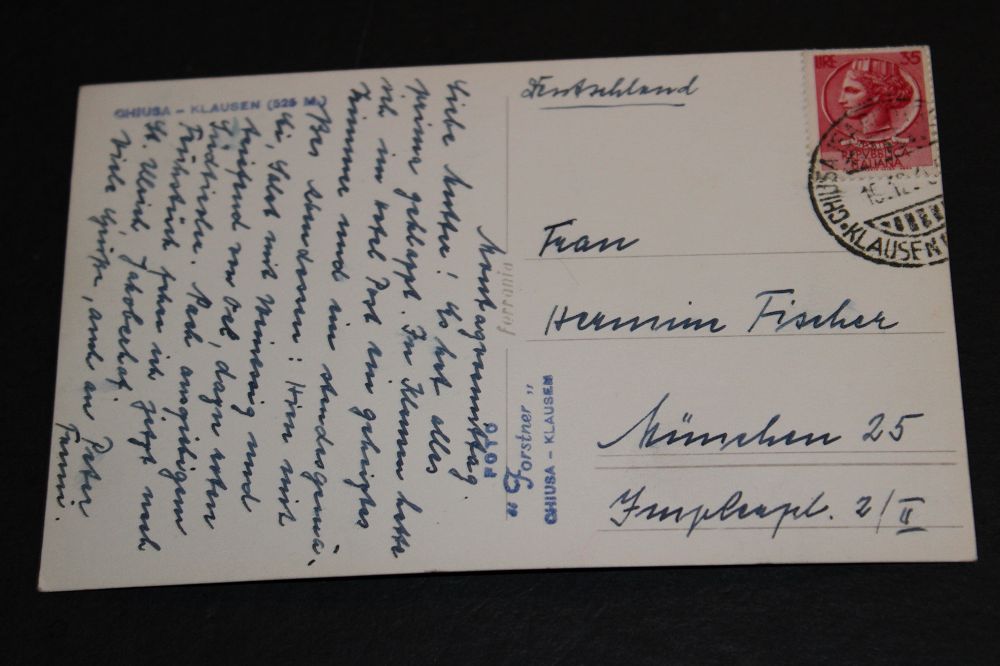 CHIUSA - KLAUSEN (525 M.)
Montagvormittag.
Liebe Mutter! Es hat alles
prima geklappt. In Klausen hatte
ich im Hotel Post ein geheiztes
Zimmer und ein standesgemä-
ßes Abendessen: Hirn mit
Ei, Salat mit Meinung und
triefend von Oel, dazu roten
Südtiroler. Nach ausgiebigem
Frühstück fahre ich jetzt nach
St. Ulrich, Jakoberhof.
Viele Grüße, auch an Peter
Fanni.
ferrania
FOTO
"Forstner"
CHIUSA - KLAUSEN
Deutschland
LIRE 35
REPVBBLICA
ITALIANA
CHIUSA
KLAUSEN
Frau
Hermine Fischer
München 25
2/II